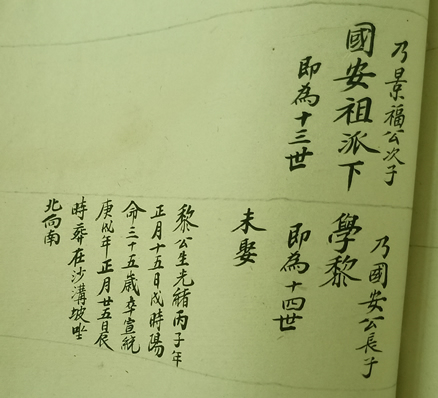 乃景福公次子
國安祖派下
即為十三世
乃國安公長子
學黎
即為十四世
未娶
黎公生光緒丙子年
正月十五日戌時陽
命三十五歲卒宣統
庚戌年正月廿五日辰
時葬在沙溝坡坐
北向南